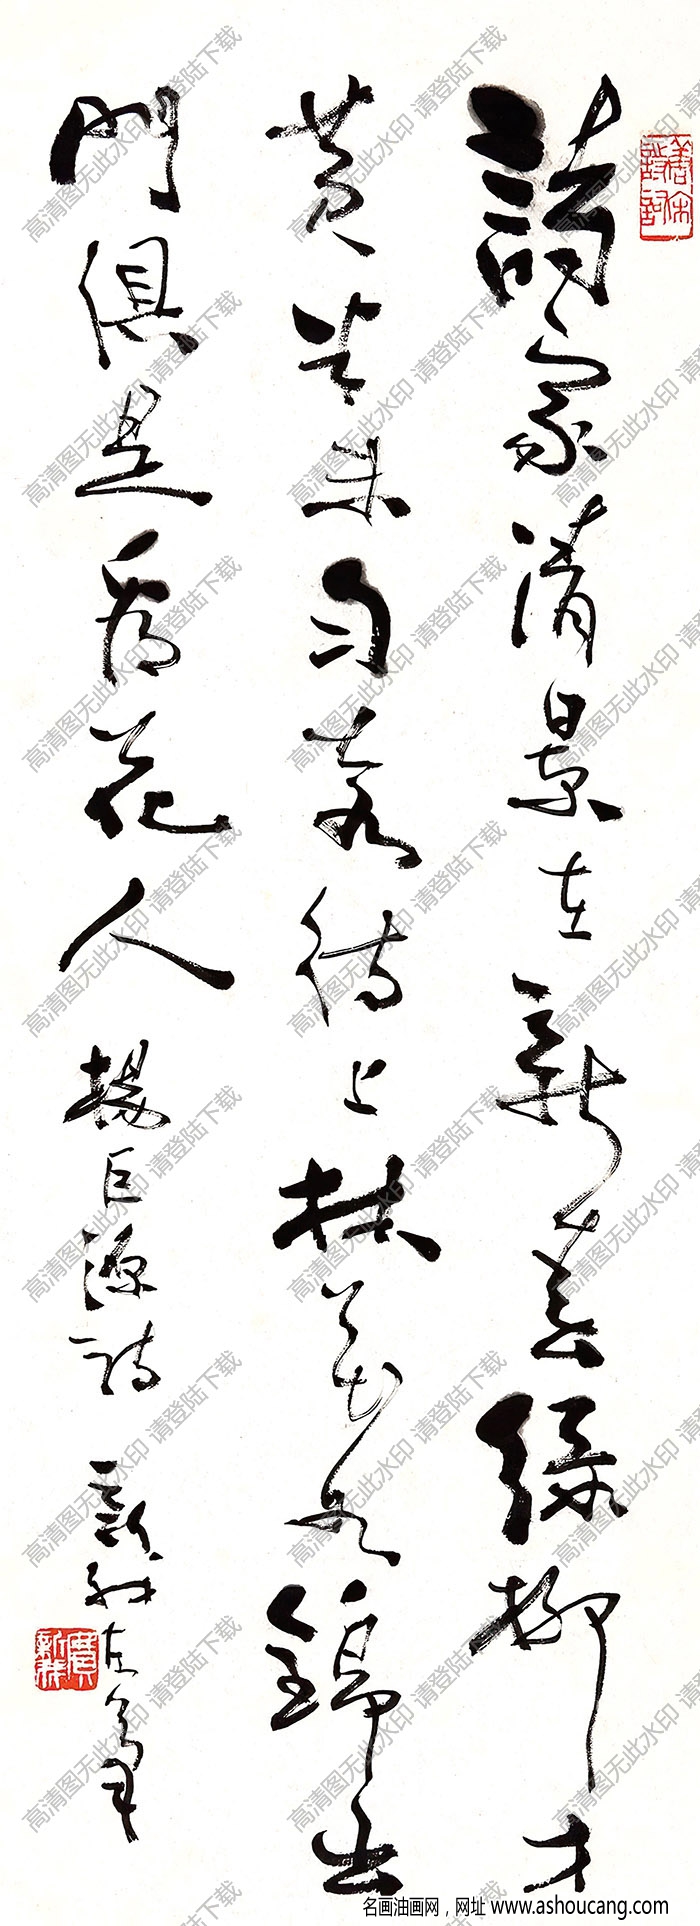 唐宋詩詞
詩家清景在新春綠柳才
黄半未匀若待上林花似錦出
門俱是看花人 楊巨源詩 新我左筆
費新我
高清图无此水印 请登陆下载
名画油画网，网址 www.ashoucang.com